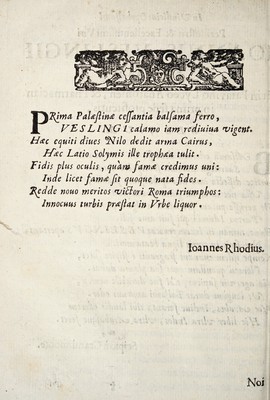 PRima Palæstinæ cessantia balsama ferro,
VESLINGI calamo iam rediuiua vigent.
Hæc equiti diues Nilo dedit arma Cairus,
Hæc Latio Solymis ille trophæa tulit.
Fidis plus oculis, quàm famæ credimus uni:
Inde licet famæ sit quoque nata fides.
Redde nouo meritos victori Roma triumphos:
Innocuus turbis præstat in Vrbe liquor.
Ioannes Rhodius.
Noi